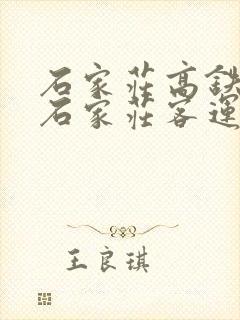 石家莊高鐵
石家莊客運
王良琪